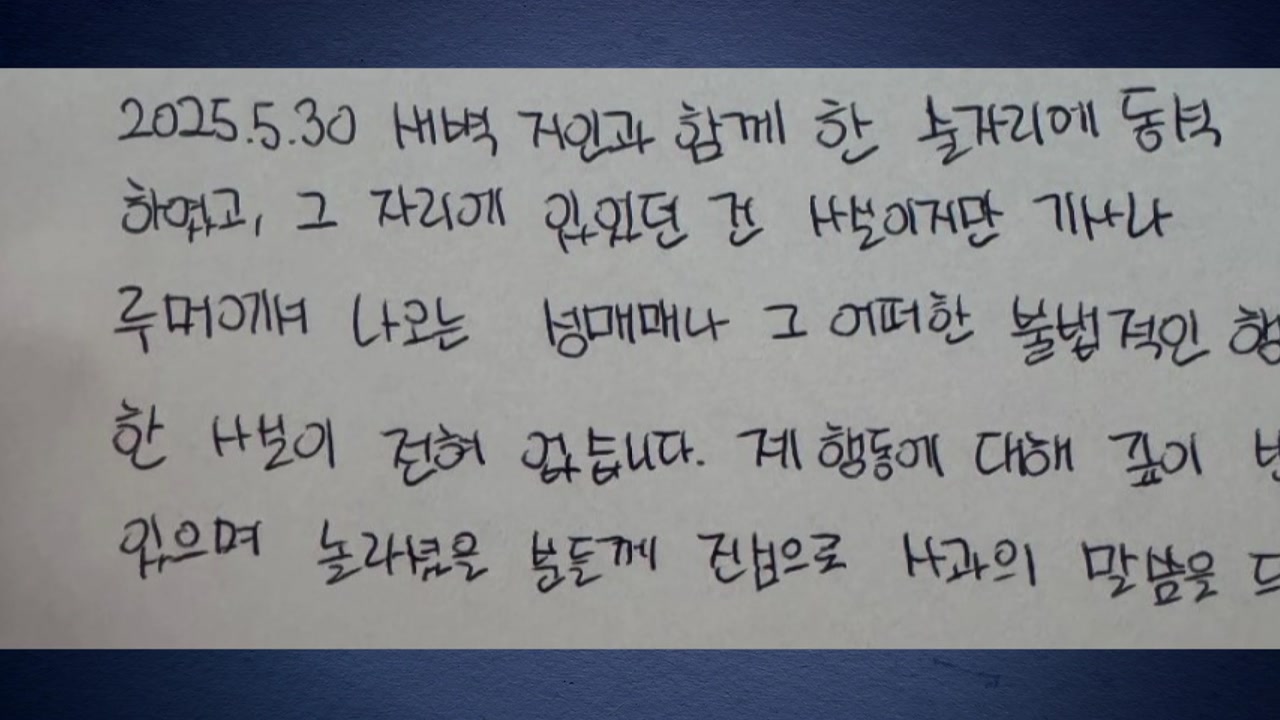 2025.5.30 새벽 지인과 함께 한 술자리에 동석
하였고, 그 자리에 있었던 건 사실이지만 기사나
루머에서 나오는 성매매나 그 어떠한 불법적인 행
한 사실이 전혀 없습니다. 제 행동에 대해 깊이
있으며 놀라셨을 분들께 진심으로 사과의 말씀을 드